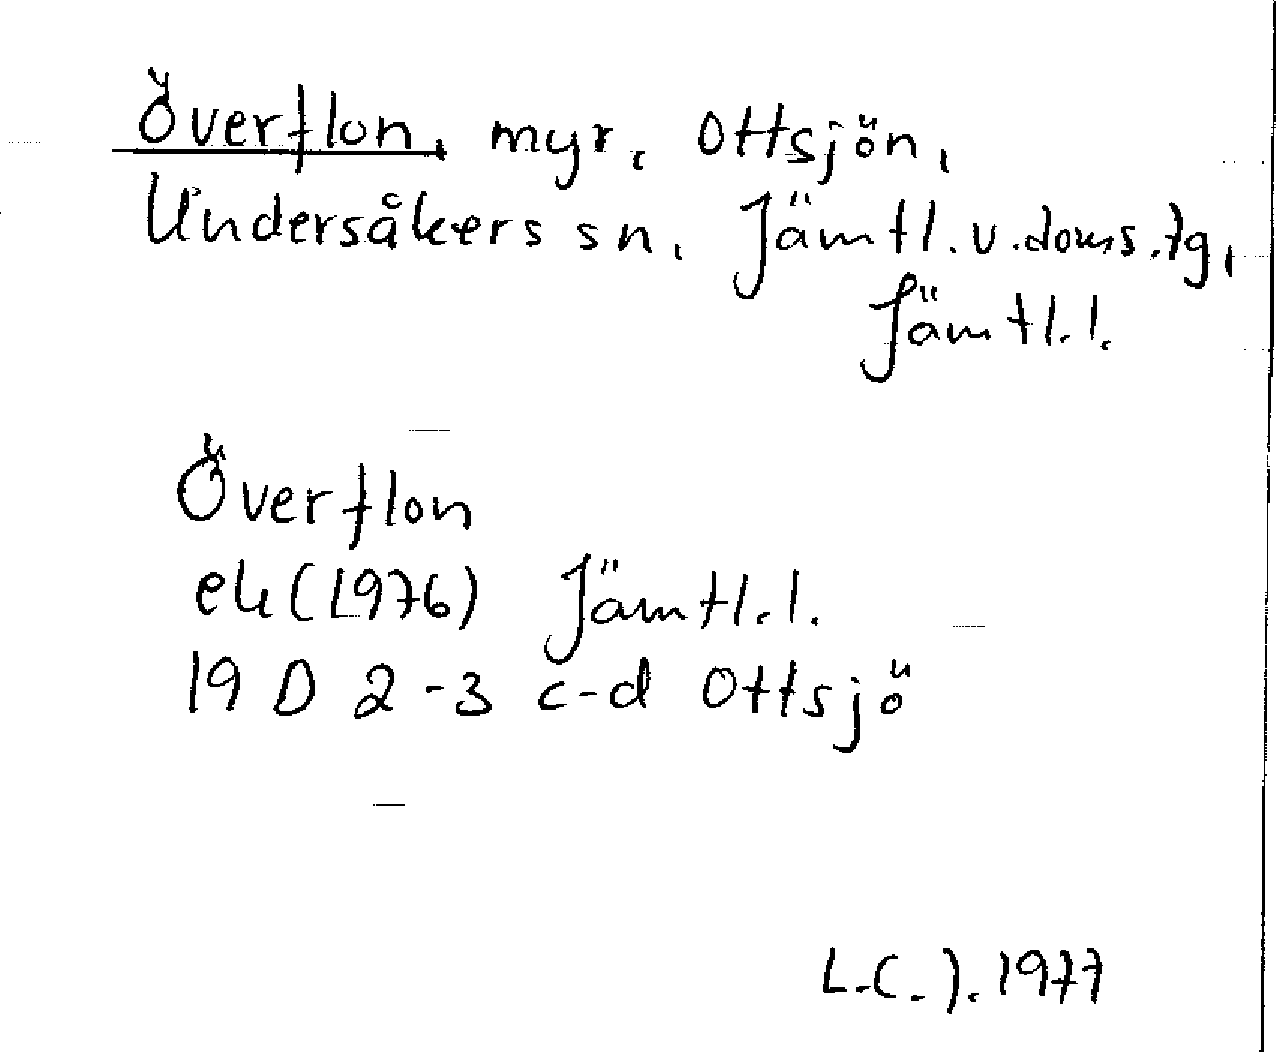 Överflon, myr, Ottsjön,
Undersåkers sn, Jämtl. v. doms. tg,
Jämtl. l.
Överflon
ek (1976) Jämtl. l.
19 D 2-3 c-d Ottsjö
L.(-). 1977